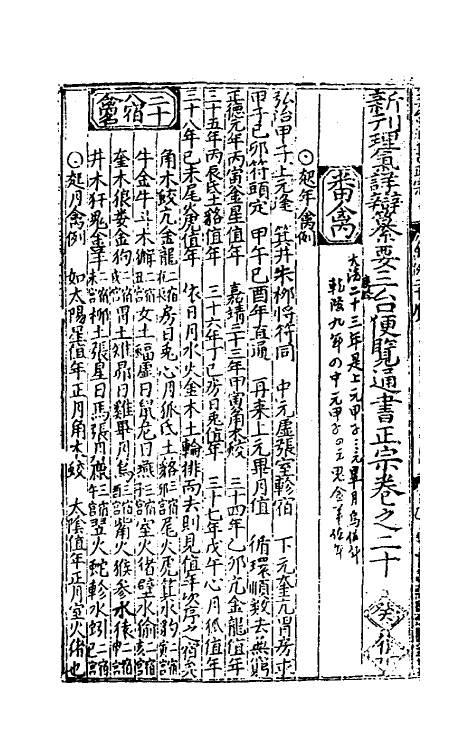 新刊理氣詳辯纂要三台便覽通書正宗卷之二十
番禽
大清二十三年是上元甲子
乾隆九年の中元甲子
⊙起年禽例
弘治甲子上元逢 箕井朱柳將符同 中元虛張室軫宿 下元奎亢胃房求
甲子己卯符頭定 甲午己酉年直通 再來上元畢月值 循環順數去無窮
正德元年丙寅金星值年 嘉靖三十三年甲寅角木蛟 三十四年乙卯亢金龍值年
三十五年丙辰氐土貉值年 三十六年丁巳房日兔值年 三十七年戊午心月狐值年
三十八年己未尾火虎值年 依日月水火金木土輪排而去則見值年次序之宿矣
二十八宿名禽
角木蛟亢金龍 房日兔心月狐氐土貉 尾火虎箕水豹
牛金牛斗木獬 女土蝠虛日鼠危月燕 室火猪壁水㺄
奎木狼婁金狗 胃土雉昴日雞畢月烏 觜火猴參水猿
井木犴鬼金羊 柳土獐星日馬張月鹿 翌火蛇軫水蚓
⊙起月禽例 如太陽星值年正月角木蛟 太陰值年正月室火猪也